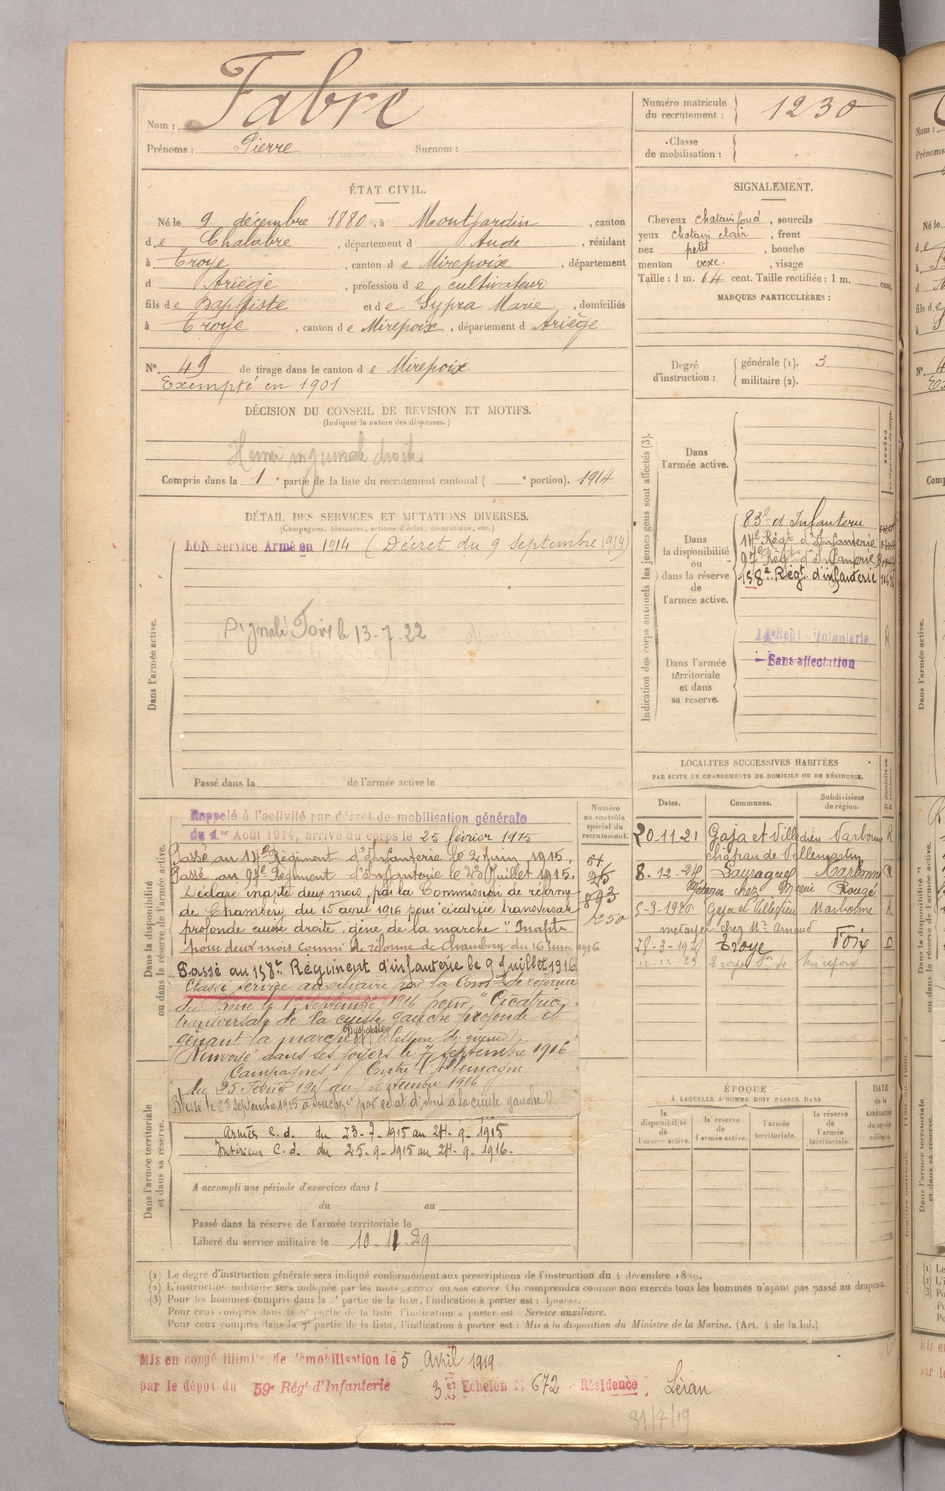 Fabre
Nom :
Prénoms : Pierre Surnom :
Numéro matricule du recrutement : 1230
Classe de mobilisation :
ÉTAT CIVIL.
Né le 9 décembre 1880, à Montjardin, canton
de Chalabre, département d Aude, résidant
à Troye, canton de Mirepoix, département
d Ariège, profession de cultivateur
fils de Baptiste et de Sypra Marie, domiciliés
à Troye, canton de Mirepoix, département d Ariège
N° 49 de tirage dans le canton de Mirepoix
Exempté en 1901
SIGNALEMENT.
Cheveux chatain foncé, sourcils
yeux chatain clair, front
nez petit, bouche
menton vexe, visage
Taille : 1 m. 64 cent. Taille rectifiée : 1 m. cent.
MARQUES PARTICULIÈRES :
Degré d'instruction : générale (1). 3
militaire (2).
DÉCISION DU CONSEIL DE REVISION ET MOTIFS.
(Indiquer la nature des dispenses.)
Hernie inguinale droite
Compris dans la 1e partie de la liste du recrutement cantonal ( e portion). 1914
DÉTAIL DES SERVICES ET MUTATIONS DIVERSES.
(Campagnes, blessures, actions d'éclat, décorations, etc.)
BON Service Armé en 1914 (Décret du 9 Septembre 1914)
Foix le 13-7-22
Dans l'armée active.
Passé dans la de l'armée active le
Indication des corps auxquels les jeunes gens sont affectés (3).
Dans l'armée active.
Dans la disponibilité ou dans la réserve de l'armée active.
83e d'Infanterie
14e Régt d'Infanterie
97e Régt d'Infanterie
158e Régt d'infanterie
Dans l'armée territoriale et dans sa réserve.
Régt d'Infanterie
Sans affectation
LOCALITES SUCCESSIVES HABITÉES
PAR SUITE DE CHANGEMENTS DE DOMICILE OU DE RÉSIDENCE.
Dates. Communes. Subdivisions de région.
20-11-21 Gaja et Villedieu Narbonne
8-12-24 Narbonne
chez Mr Rougé
5-3-1926 Gaja et Villedieu Narbonne
métayer chez Mr Arnaud
28-3-1928 Troye Foix
Dans la disponibilité ou dans la réserve de l'armée active.
Numéro au contrôle spécial du recrutement.
Rappelé à l'activité par décret de mobilisation générale
du 1er Août 1914, arrivé au corps le 25 février 1915
Passé au 14e Régiment d'Infanterie le 2 juin 1915.
Passé au 97e Régiment d'Infanterie le 23 Juillet 1915.
Déclaré inapte deux mois par la Commission de réforme
de Chambéry du 15 avril 1916 pour "cicatrice transversale
profonde cuisse droite, gêne de la marche". Inapte
pour deux mois Comm. de réforme de Chambéry du 16 juin 1916
Passé au 158e Régiment d'infanterie le 9 Juillet 1916
Classé service auxiliaire par la Com. de réforme
du 1er septembre 1916 pour "Cicatrice
transversale de la cuisse gauche profonde et
gênant la marche" (blessure de guerre)
Renvoyé dans ses foyers le 7 septembre 1916
Campagnes Contre l'Allemagne
du 25 Février 1915 au septembre 1916
Blessé le 25 Septembre 1915 à Souchez "par éclat d'obus à la cuisse gauche"
Dans l'armée territoriale et dans sa réserve.
Armées C.d. du 23-7-1915 au 24-9-1915
Intérieur C.d. du 25-9-1915 au 24-9-1916.
A accompli une période d'exercices dans l
du au
Passé dans la réserve de l'armée territoriale le
Libéré du service militaire le 10-11-29
ÉPOQUE
À LAQUELLE L'HOMME DOIT PASSER DANS
la disponibilité de l'armée active. la réserve de l'armée active. l'armée territoriale. la réserve de l'armée territoriale.
DATE de la LIBÉRATION du service militaire
(1) Le degré d'instruction générale sera indiqué conformément aux prescriptions de l'instruction du 4 décembre 1889.
(2) L'instruction militaire sera indiquée par les mots exercé ou non exercé. On comprendra comme non exercés tous les hommes n'ayant pas passé au drapeau.
(3) Pour les hommes compris dans la partie de la liste, l'indication à porter est :
Pour ceux compris dans la partie de la liste l'indication à porter est Service auxiliaire.
Pour ceux compris dans la partie de la liste, l'indication à porter est : Mis à la disposition du Ministre de la Marine. (Art. 4 de la loi.)
Mis en congé illimité de démobilisation le 5 Avril 1919
par le dépôt du 59e Régt d'Infanterie 3e Echelon N° 672 Résidence : Léran
31/7/19